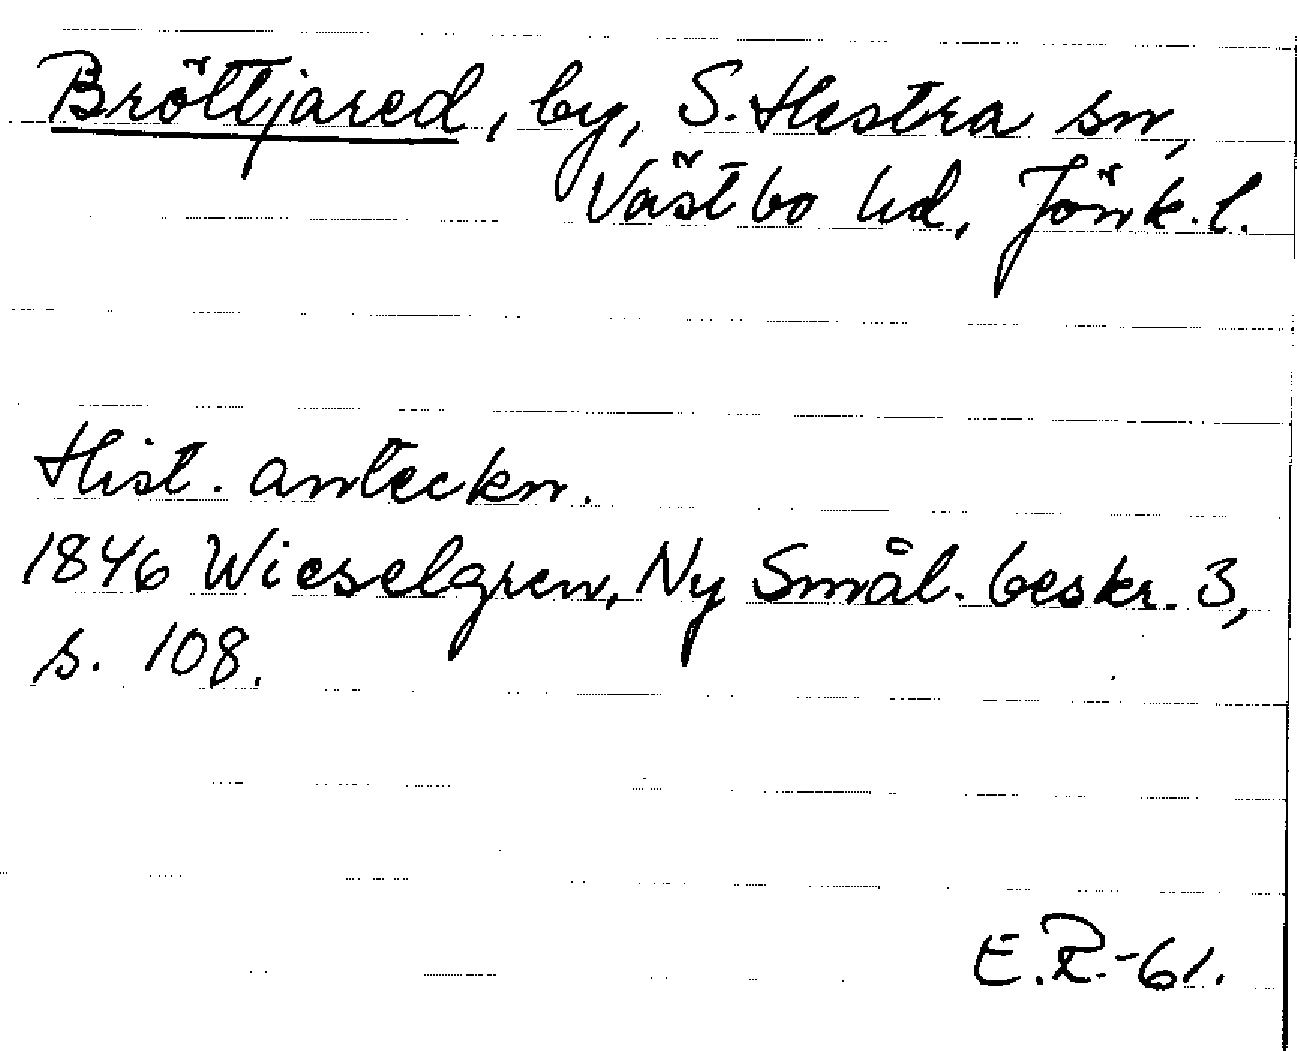 Bröttjared, by, S. Hestra sn,
Västbo hd, Jönk. l.
Hist. anteckn.
1846 Wieselgren, Ny Smål. beskr. 3,
s. 108.
E.R.-61.